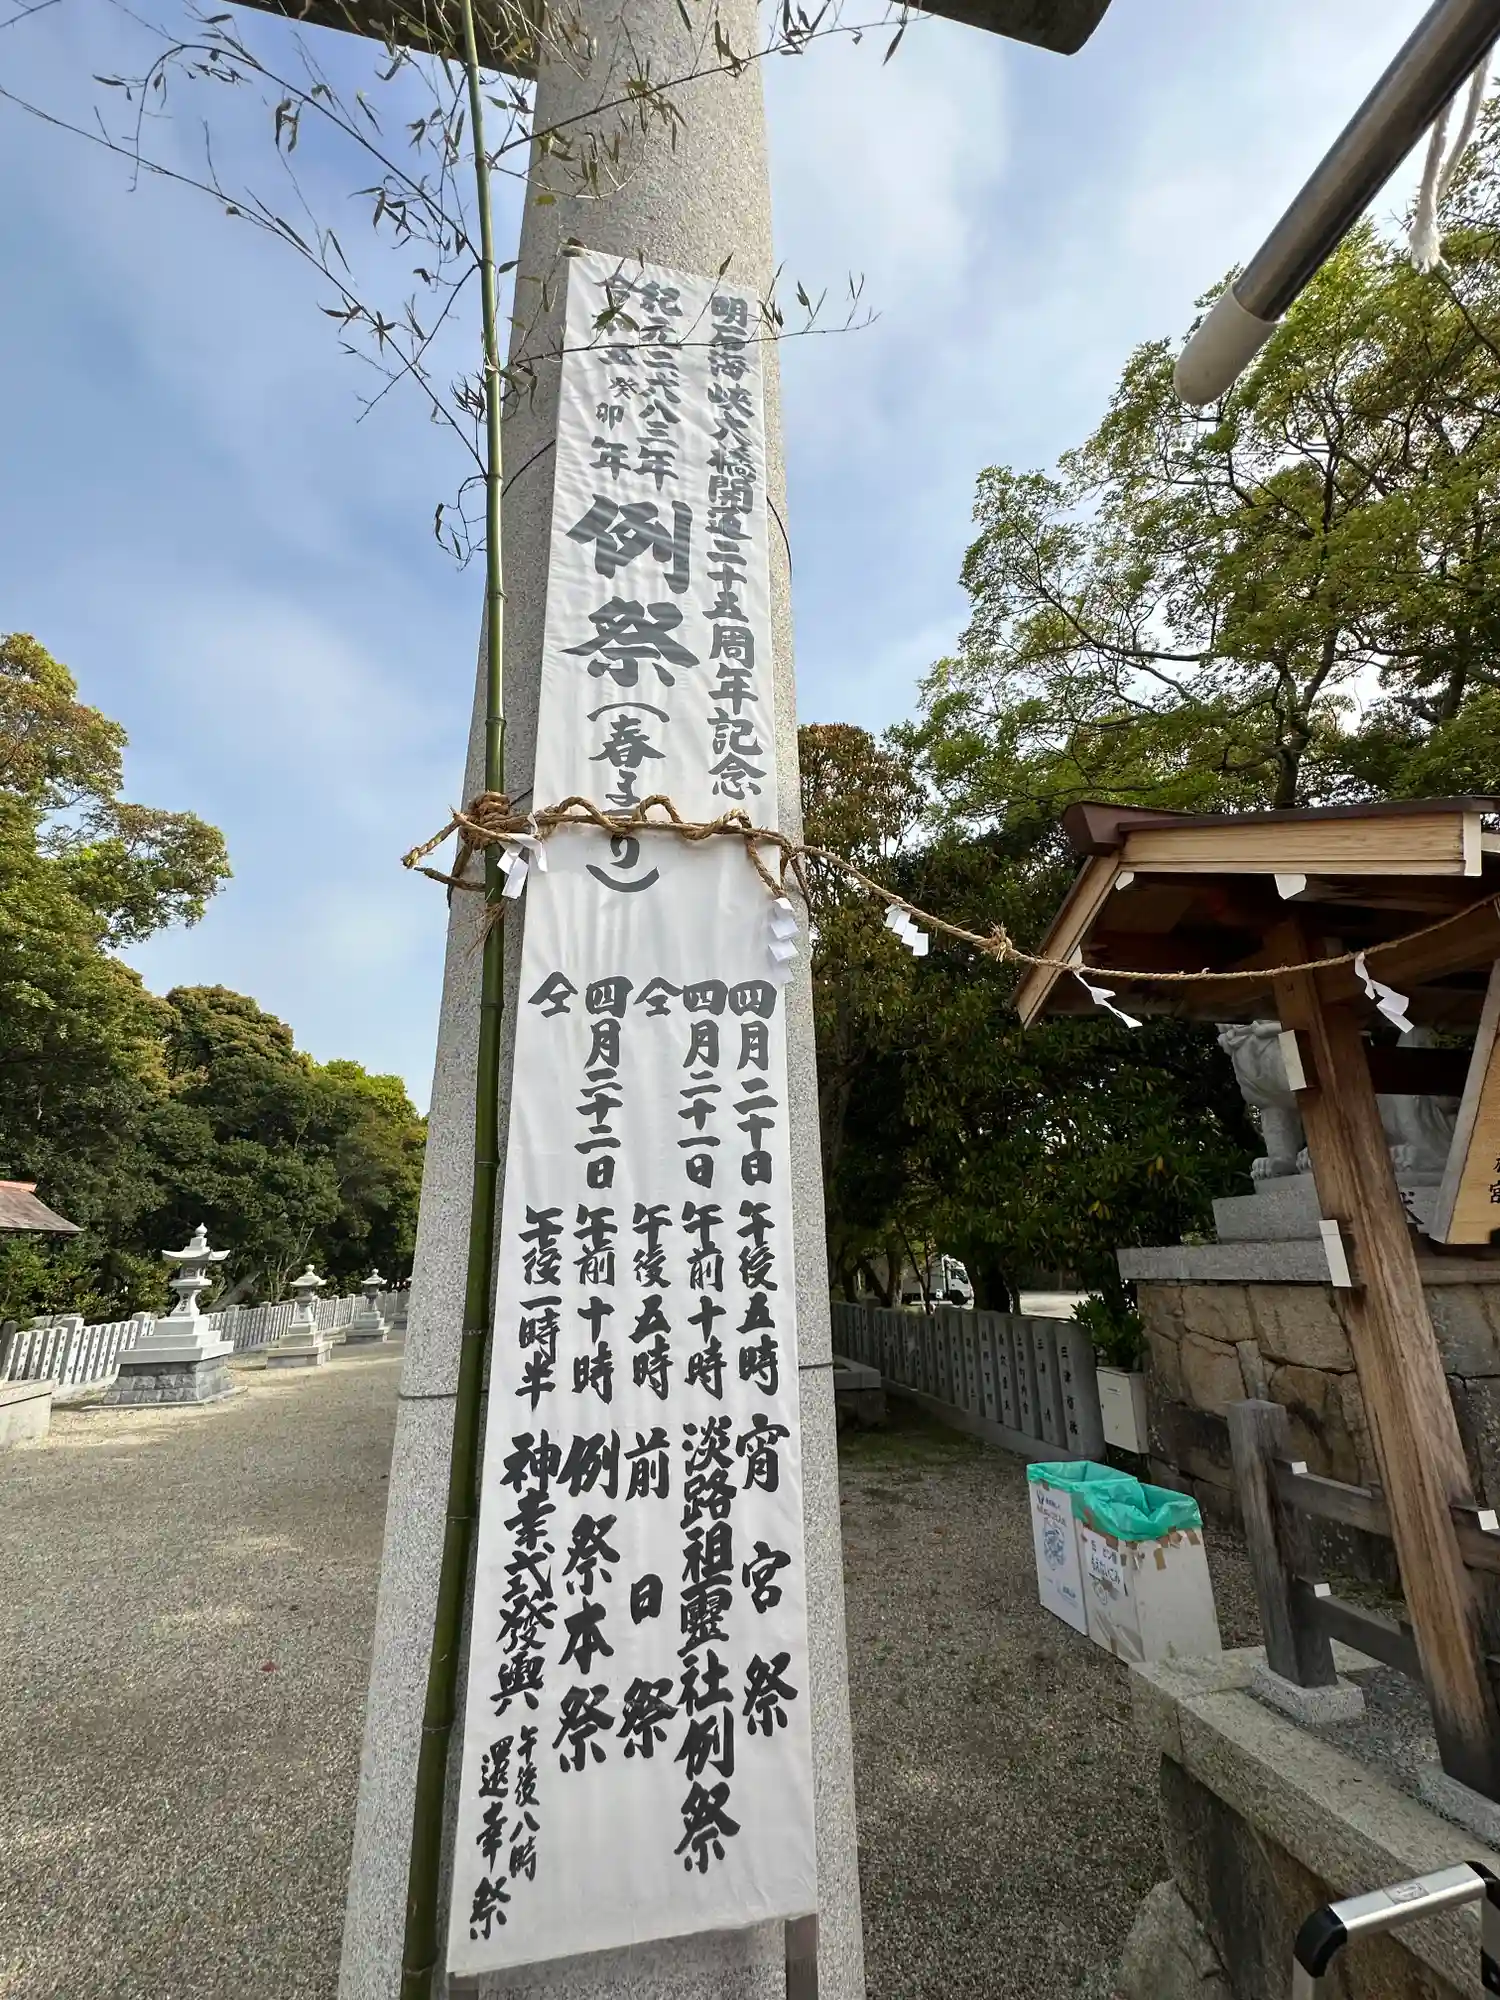 明石海峡大橋開通二十五周年記念
紀元二六八三年
令和五癸卯年
例祭(春まつり)
四月二十日 午後五時 宵宮祭
四月二十一日 午前十時 淡路祖靈社例祭
仝 午後五時 前日祭
四月二十二日 午前十時 例祭本祭
仝 午後一時半 神幸式發輿
午後八時 還幸祭
もえないごみ
宮